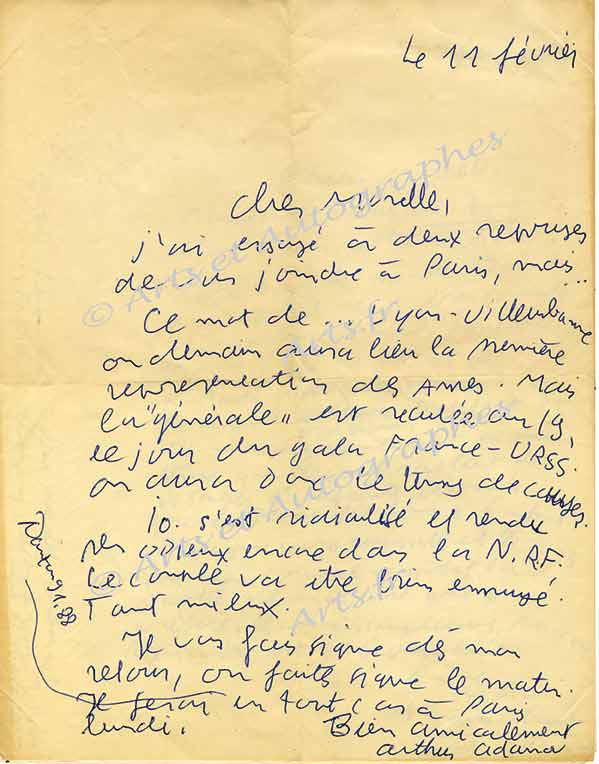 Le 11 février
Cher Morelle,
j'ai essayé à deux reprises
de vous joindre à Paris, mais...
Ce mot de ... Lyon-Villeurbanne
où demain aura lieu la première
représentation des Ames. Mais
la "générale" est reculée au 19,
le jour du gala France-URSS.
on aura donc le temps de
Io. s'est ridiculisé et rendu
odieux encore dans la N.R.F.
Le couple va être bien ennuyé.
Tant mieux.
Je vous fais signe dès mon
retour, ou faites signe le matin.
Je serai en tout cas à Paris
lundi.
Bien amicalement
arthur adamov
© Arts et Autographes
Arts.fr
© Arts et Autographes
Arts.fr